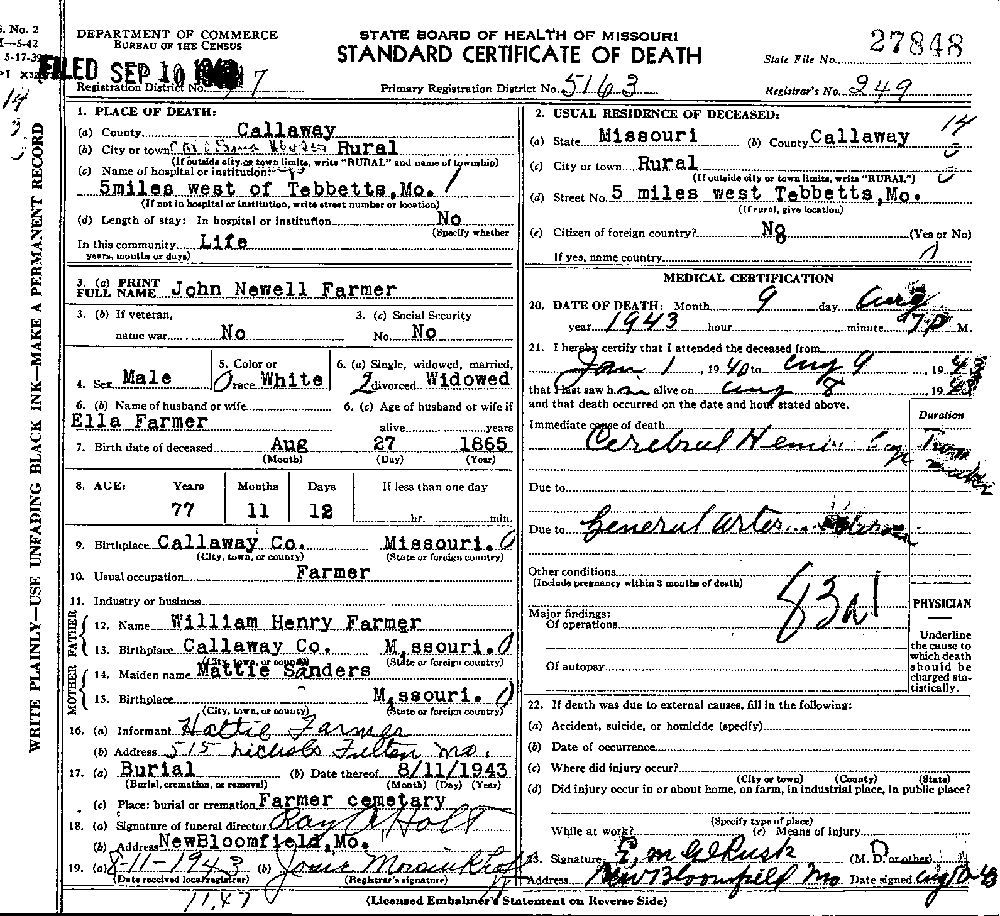 S. No. 2
5-42
5-17-39
DEPARTMENT OF COMMERCE
BUREAU OF THE CENSUS
STATE BOARD OF HEALTH OF MISSOURI
STANDARD CERTIFICATE OF DEATH
State File No. 27848
FILED SEP 10
Registration District No. 7
Primary Registration District No. 5163
Registrar's No. 249
14
3
WRITE PLAINLY—USE UNFADING BLACK INK—MAKE A PERMANENT RECORD
1. PLACE OF DEATH:
(a) County Callaway
(b) City or town Rural
(If outside city or town limits, write "RURAL" and name of township)
(c) Name of hospital or institution:
5miles west of Tebbetts,Mo.
(If not in hospital or institution, write street number or location)
(d) Length of stay: In hospital or institution No
(Specify whether
In this community Life
years, months or days)
2. USUAL RESIDENCE OF DECEASED:
14
(a) State Missouri (b) County Callaway
(c) City or town Rural
(If outside city or town limits, write "RURAL")
(d) Street No. 5 miles west Tebbetts,Mo.
(If rural, give location)
(e) Citizen of foreign country? No (Yes or No)
If yes, name country
3. (a) PRINT FULL NAME John Newell Farmer
3. (b) If veteran, name war No
3. (c) Social Security No. No
4. Sex Male
5. Color or race White
6. (a) Single, widowed, married, divorced Widowed
6. (b) Name of husband or wife
Ella Farmer
6. (c) Age of husband or wife if alive years
7. Birth date of deceased Aug 27 1865
(Month) (Day) (Year)
8. AGE: Years Months Days If less than one day
77 11 12 hr. min.
9. Birthplace Callaway Co. Missouri.
(City, town, or county) (State or foreign country)
10. Usual occupation Farmer
11. Industry or business
FATHER
12. Name William Henry Farmer
13. Birthplace Callaway Co. M.ssouri.
(City, town, or county) (State or foreign country)
MOTHER
14. Maiden name Mattie Sanders
15. Birthplace M.ssouri.
(City, town, or county) (State or foreign country)
16. (a) Informant Hattie Farmer
(b) Address 515 Nichols Fulton Mo.
17. (a) Burial (b) Date thereof 8/11/1943
(Burial, cremation, or removal) (Month) (Day) (Year)
(c) Place: burial or cremation Farmer cemetary
18. (a) Signature of funeral director Ray Holt
(b) Address NewBloomfield,Mo.
19. (a) 8-11-1943 (b) Josie
(Date received local registrar) (Registrar's signature)
1147
MEDICAL CERTIFICATION
20. DATE OF DEATH: Month 9 day Aug
year 1943 hour minute 7P M.
21. I hereby certify that I attended the deceased from
Jan 1 1940 to Aug 9 1943
that I last saw h alive on Aug 8 1943
and that death occurred on the date and hour stated above.
Duration
Immediate cause of death
Cerebral
Due to
Due to General
Other conditions
(Include pregnancy within 3 months of death)
83a1
Major findings:
Of operations
Of autopsy
PHYSICIAN
Underline the cause to which death should be charged statistically.
22. If death was due to external causes, fill in the following:
(a) Accident, suicide, or homicide (specify)
(b) Date of occurrence
(c) Where did injury occur?
(City or town) (County) (State)
(d) Did injury occur in or about home, on farm, in industrial place, in public place?
(Specify type of place)
While at work? (e) Means of injury
23. Signature (M. D. or other)
Address New Bloomfield Mo Date signed Aug 10-43
(Licensed Embalmer's Statement on Reverse Side)